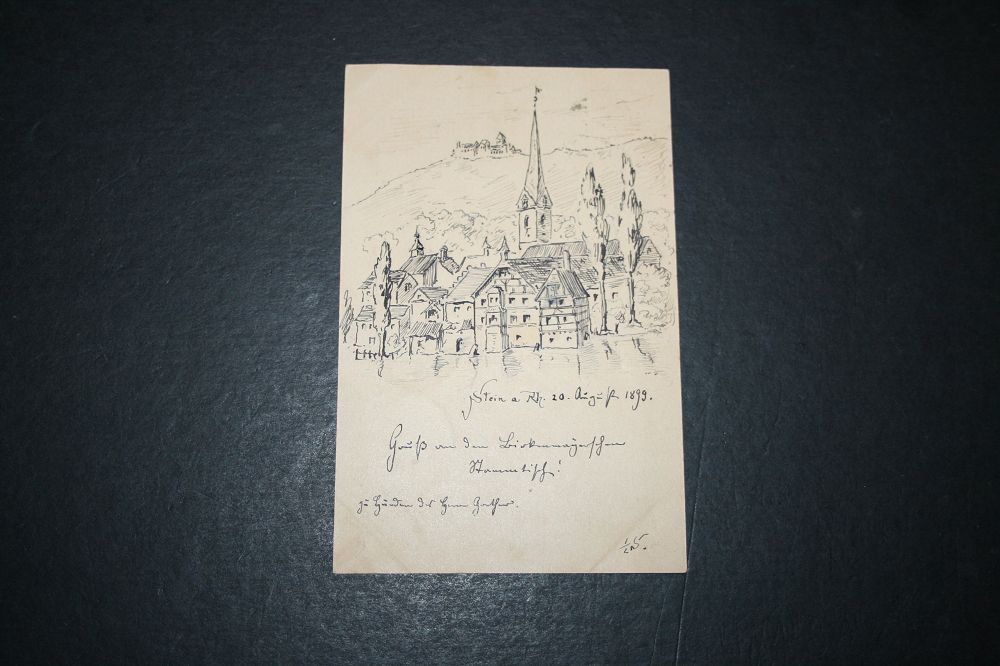 Stein a Rh. 20. August 1899.
Gruß an den Birkenmayerschen
Stammtisch!
zu Handen des Herrn